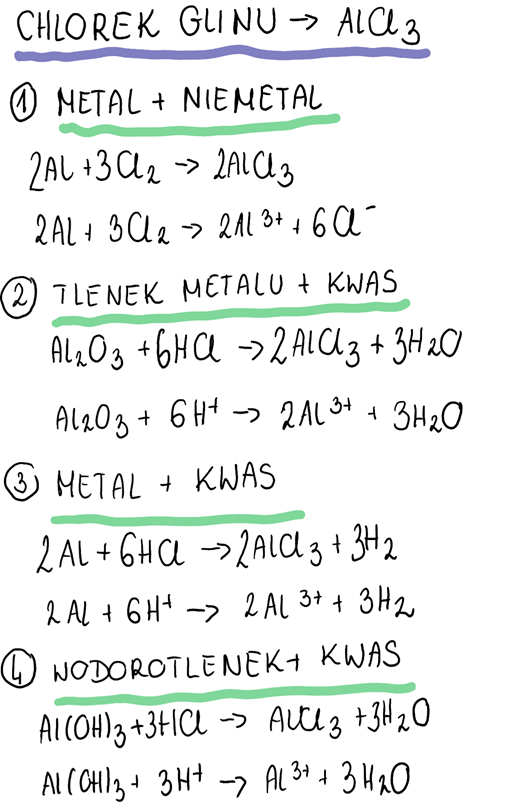 CHLOREK GLINU → AlCl₃
① METAL + NIEMETAL
2Al + 3Cl₂ → 2AlCl₃
2Al + 3Cl₂ → 2Al³⁺ + 6Cl⁻
② TLENEK METALU + KWAS
Al₂O₃ + 6HCl → 2AlCl₃ + 3H₂O
Al₂O₃ + 6H⁺ → 2Al³⁺ + 3H₂O
③ METAL + KWAS
2Al + 6HCl → 2AlCl₃ + 3H₂
2Al + 6H⁺ → 2Al³⁺ + 3H₂
④ WODOROTLENEK + KWAS
Al(OH)₃ + 3HCl → AlCl₃ + 3H₂O
Al(OH)₃ + 3H⁺ → Al³⁺ + 3H₂O